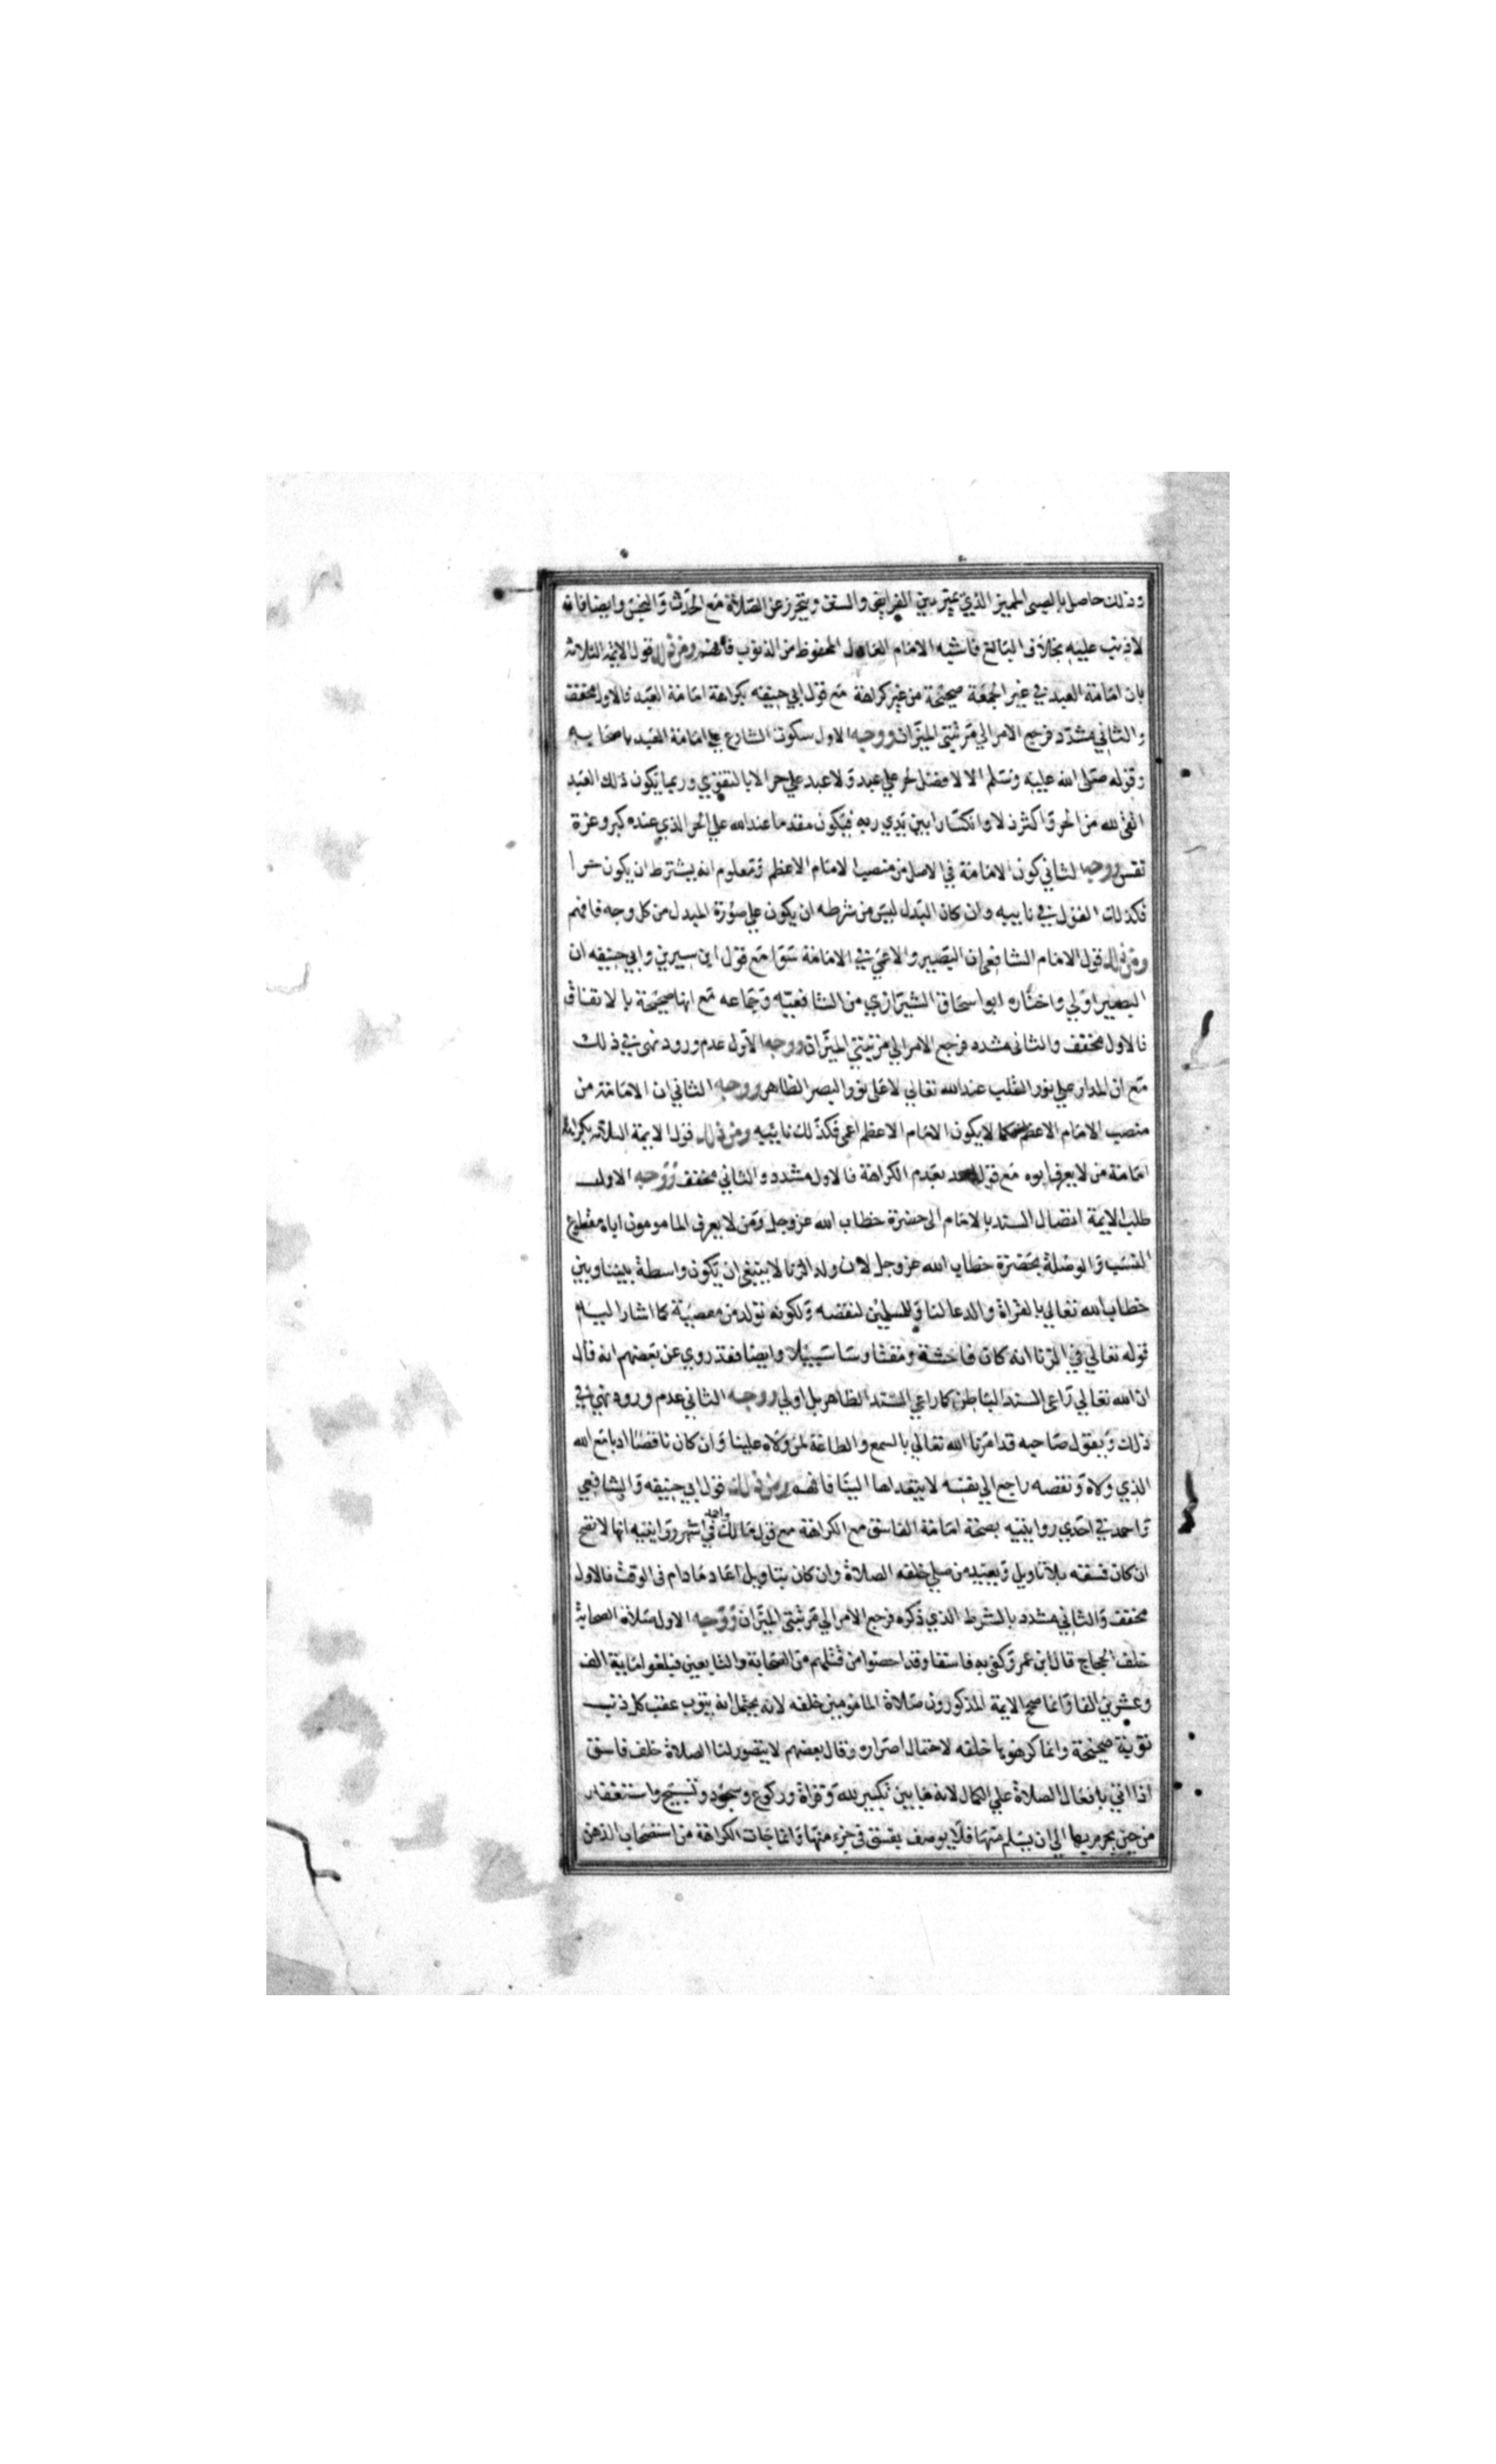 وذلك حاصل بالصبي المميز الذي يميز بين الفرايض والسنن ويتحرز عن الصلاة مع الحدث والنجس وايضا فانه
لا ذنب عليه بخلاف البالغ فاشبه الامام العادل المحفوظ من الذنوب فافهم ومن ذلك قول الايمة الثلاثة
بان امامة العبد في غير الجمعة صحيحة من غير كراهة مع قول ابي حنيفه بكراهة امامة العبد فالاول مخفف
والثاني مشدد فرجع الامر الي مرتبتي الميزان ووجه الاول سكوت الشارع علي امامة العبد باصحابه
وقوله صلى الله عليه وسلم الا لا فضل لحر علي عبد ولا عبد علي حر الا بالتقوي وربما يكون ذلك العبد
اتقى لله من الحر واكثر ذلا وانكسارا بين يدي ربه فيكون مقدما عند الله علي الحر الذي عنده كبر وعزة
نفس ووجه الثاني كون الامامة في الاصل من منصب الامام الاعظم ومعلوم انه يشترط ان يكون حرا
فكذلك القول في نايبيه وان كان البدل ليس من شرطه ان يكون علي صورة المبدل من كل وجه فافهم
ومن ذلك قول الامام الشافعي ان البصير والاعمي في الامامة سوا مع قول ابن سيرين وابي حنيفه ان
البصير اولي واختاره ابو اسحاق الشيرازي من الشافعيه وجماعه مع انها صحيحة بالاتفاق
فالاول مخفف والثاني مشدد فرجع الامر الي مرتبتي الميزان ووجه الاول عدم ورود نهى في ذلك
مع ان المدار علي نور القلب عند الله تعالي لا على نور البصر الظاهر ووجه الثاني ان الامامة من
منصب الامام الاعظم فكما لا يكون الامام الاعظم اعمى فكذلك نايبيه ومن ذلك قول الايمة الثلاثه بكراهة
امامة من لا يعرف ابوه مع قول احمد بعدم الكراهة فالاول مشدد والثاني مخفف ووجه الاول
طلب الايمة اتصال السند بالامام الى حضرة خطاب الله عز وجل ومن لا يعرف المامومون اباه مقطوع
النسب والوصلة بحضرة خطاب الله عز وجل لان ولد الزنا لا ينبغي ان يكون واسطة بيننا وبين
خطاب الله تعالي بالقراة والدعا لنا وللمسلمين لنقصه ولكونه تولد من معصية كما اشار اليه
قوله تعالي في الزنا انه كان فاحشة ومقتا وسا سبيلا وايضا فقد روي عن بعضهم انه قال
ان الله تعالي راعى السند الباطن كما راعي السند الظاهر بل اولي ووجه الثاني عدم ورود نهي في
ذلك ويقول صاحبه قد امرنا الله تعالي بالسمع والطاعة لمن ولاه علينا وان كان ناقصا ادبا مع الله
الذي ولاه ونقصه راجع الي نفسه لا يتعداها الينا فافهم ومن ذلك قول ابي حنيفه والشافعي
واحمد في احدي روايتيه بصحة امامة الفاسق مع الكراهة مع قول مالك واحمد في اشهر روايتيه انها لا تصح
ان كان فسقه بلا تاويل ويعيد من صلي خلفه الصلاة وان كان بتاويل اعاد ما دام في الوقت فالاول
مخفف والثاني مشدد بالشرط الذي ذكره فرجع الامر الي مرتبتي الميزان ووجه الاول صلاة الصحابة
خلف الحجاج قال ابن عمر وكفى به فاسقا وقد احصوا من قتلهم من الصحابة والتابعين فبلغوا ماية الف
وعشرين الفا وانما صحح الايمة المذكورون صلاة المامومين خلفه لانه يحتمل انه يتوب عقب كل ذنب
توبة صحيحة وانما كرهوها خلفه لاحتمال اصراره وقال بعضهم لا يتصور لنا الصلاة خلف فاسق
اذا اتي بافعال الصلاة علي الكمال لانه ما بين تكبير لله وقراة وركوع وسجود وتسبيح واستغفار
من حين يحرم بها الي ان يسلم منها فلا يوصف بفسق في جزء منها وانما جات الكراهة من استصحاب الذهن